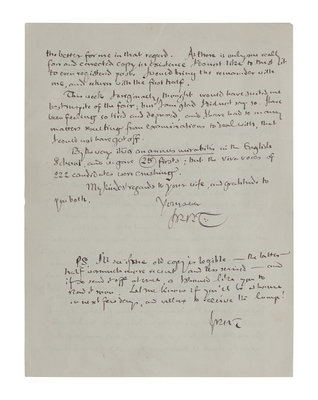 the better for me in that regard. As there is only one really
fair and corrected copy in existence I do not like to trust it
to even registered post. I would bring the remainder with
me, and return with the first half.
This week I originally thought would have suited me
best inspite of the fair, but I am glad I did not say so. I have
been feeling so tired and depressed, and I have had so many
matters resulting from examinations to deal with, that
I could not have got off.
By the way it was an annus mirabilis in the English
School, and we gave 20 firsts; but the viva voces of
222 candidates were crushing.
My kindest regards to your wife, and gratitude to
you both.
Yours ever
JRRT.
PS. I'll see if the old copy is legible — the latter
half was much more recent and less revised — and
if so send it off at once, as I should like you to
read it soon. Let me know if you'll be at home
in next few days, and willing to receive the lump!
JRRT